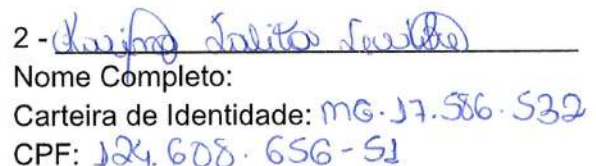 2 - Talita
Nome Completo:
Carteira de Identidade: MG.17.586.532
CPF: 124.608.656-51